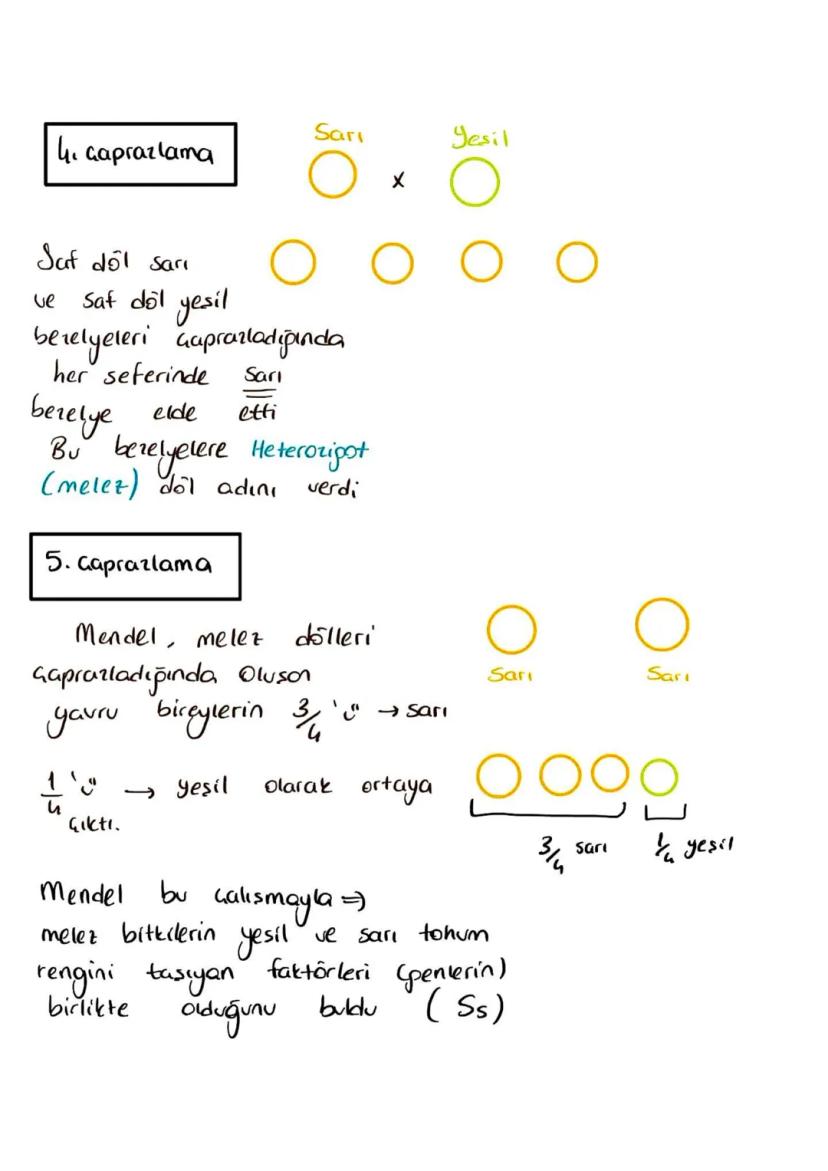 4. Çaprazlama
Sarı Yeşil
x
Saf döl sarı
ve saf döl yeşil
bezelyeleri çaprazladığında
her seferinde sarı
bezelye elde etti
Bu bezelyelere Heterozigot
(melez) döl adını verdi
5. Çaprazlama
Mendel, melez dölleri
çaprazladığında oluşan
yavru bireylerin 3/4'ü → sarı
Sarı Sarı
1/4'ü → yeşil olarak ortaya
çıktı.
3/4 sarı 1/4 yeşil
Mendel bu çalışmayla ⇒
melez bitkilerin yeşil ve sarı tohum
rengini taşıyan faktörleri (genlerin)
birlikte olduğunu buldu (Ss)